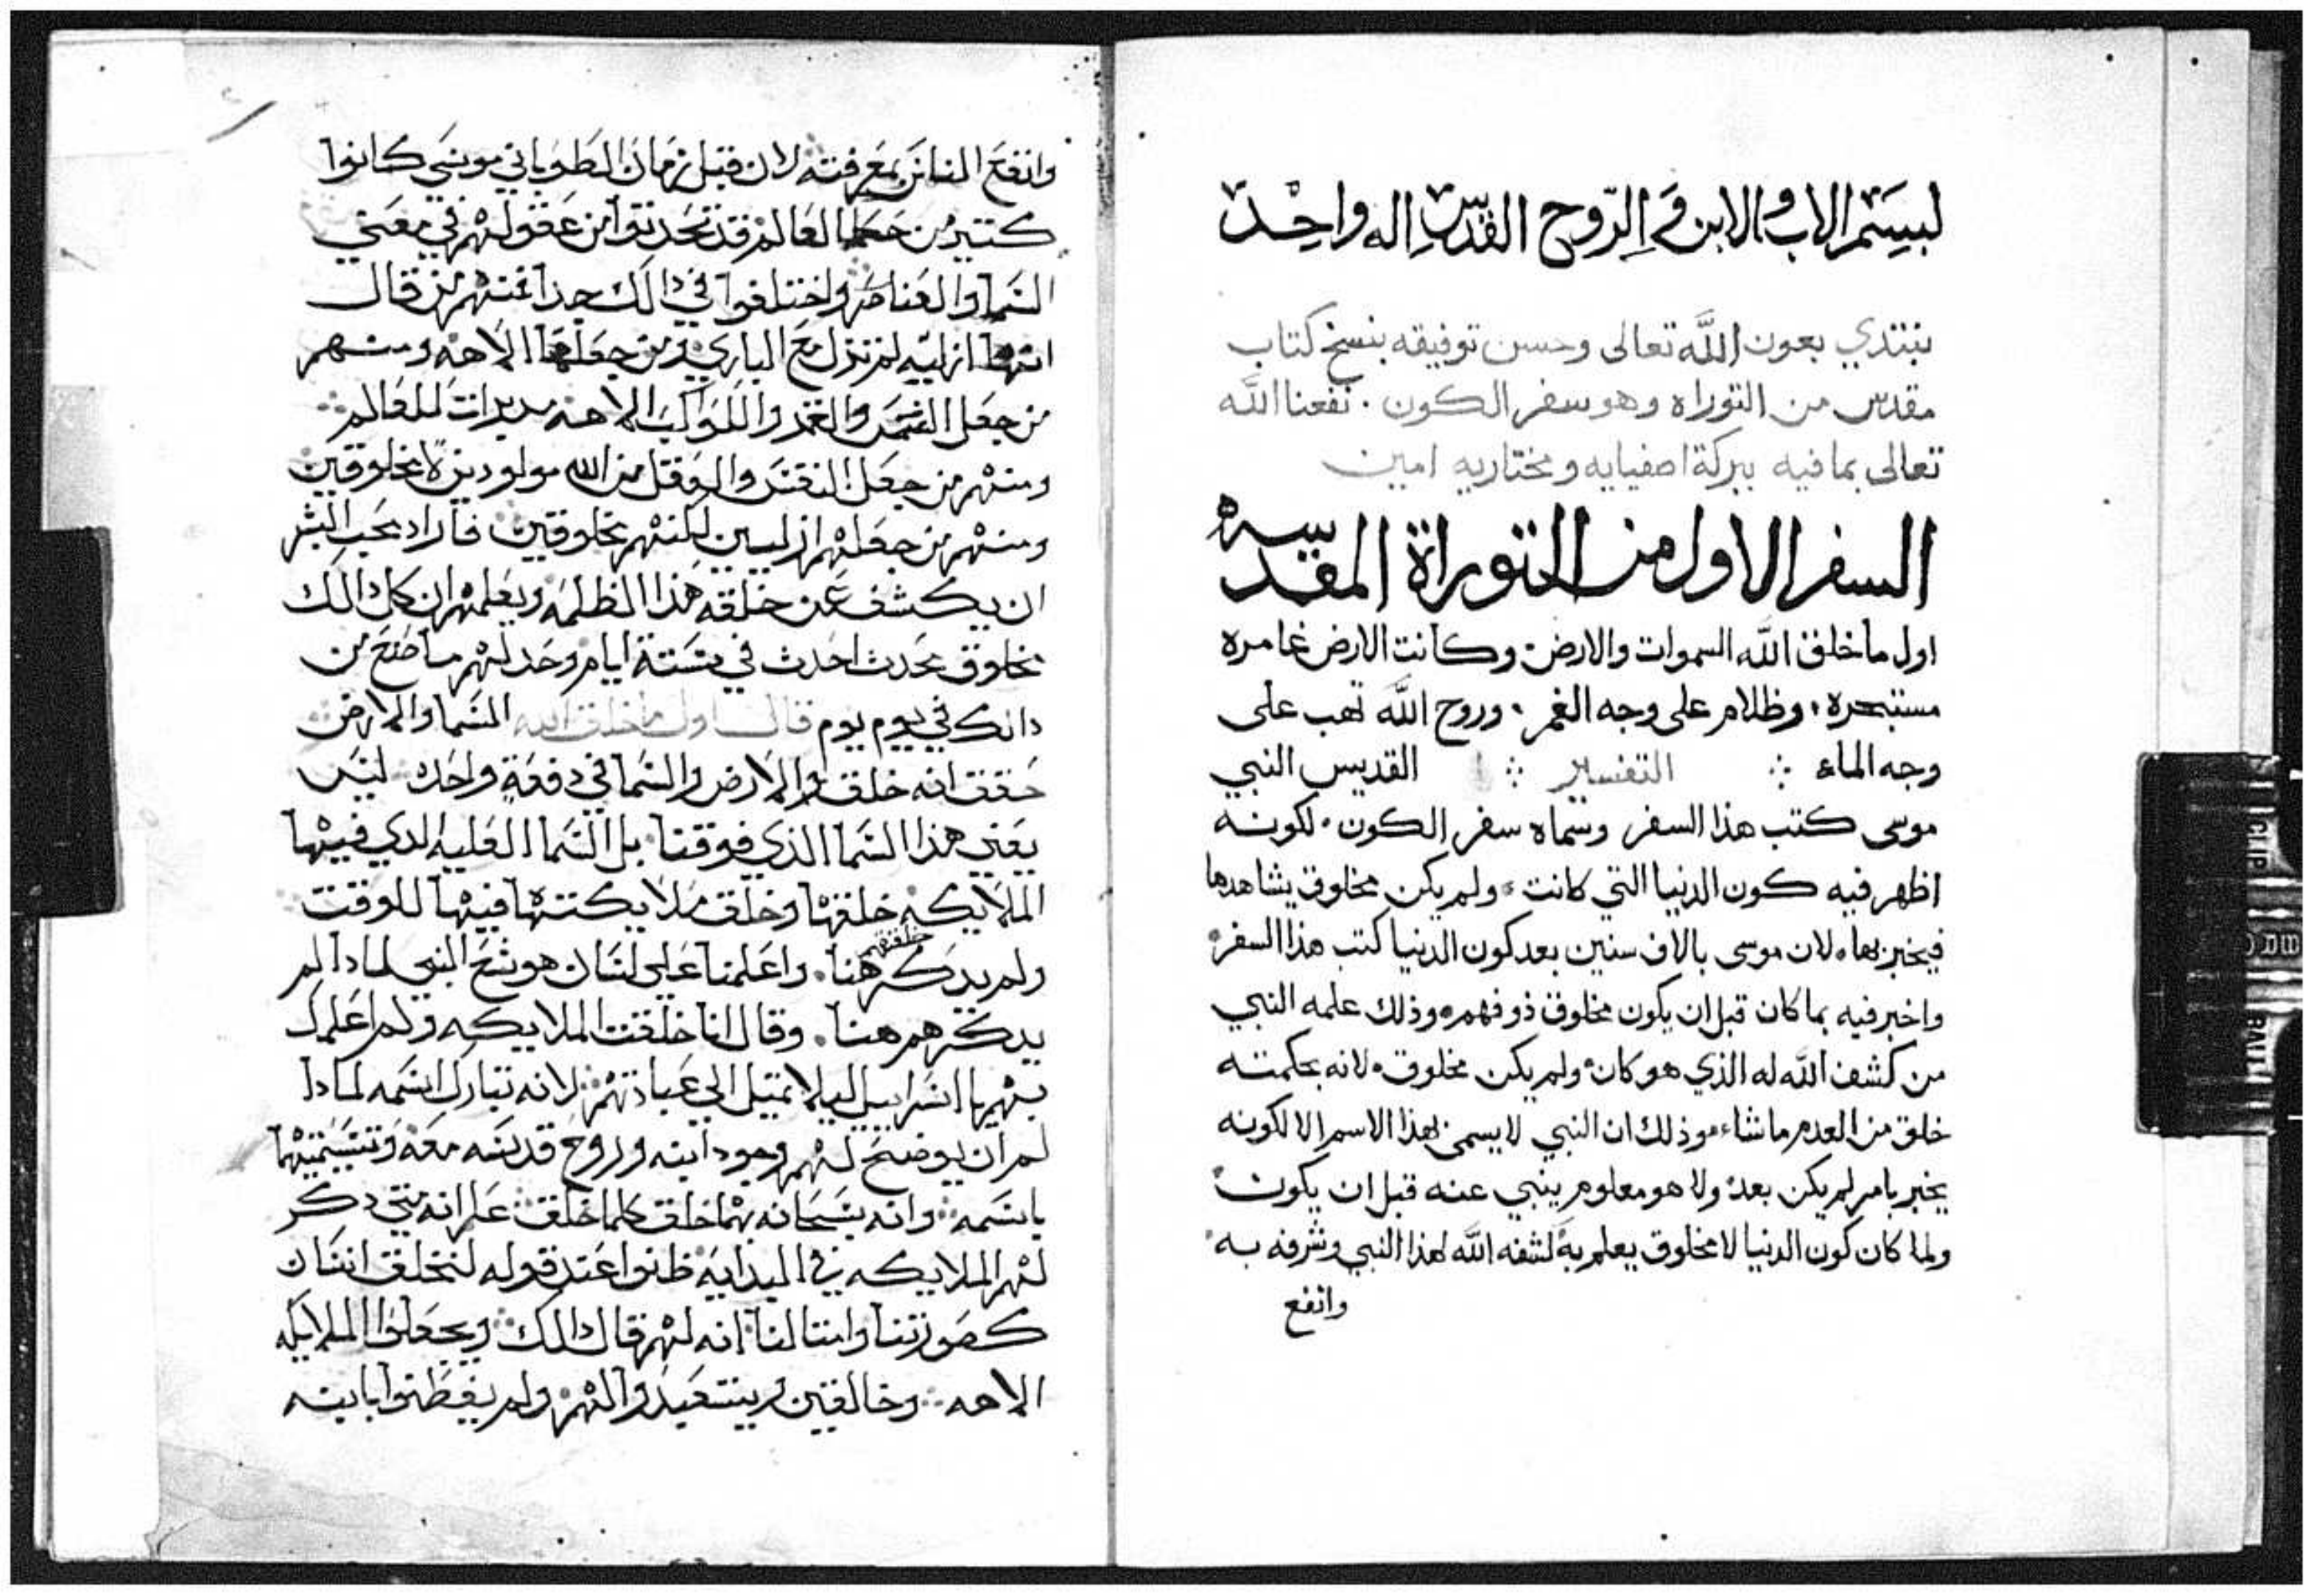 لبسم الاب والابن و الروح القدس اله واحد
نبتدي بعون الله تعالى وحسن توفيقه بنسخ كتاب
مقدس من التوراه وهو سفر الكون . نفعنا الله
تعالى بما فيه ببركة اصفيايه ومختاريه امين
السفر الاول من التوراة المقدسه
اول ما خلق الله السموات والارض وكانت الارض غامره
مستبحره وظلام على وجه الغمر . وروح الله تهب على
وجه الماء ∴ التفسير ∴ القديس النبي
موسى كتب هذا السفر وسماه سفر الكون . لكونه
اظهر فيه كون الدنيا التي كانت ولم يكن مخلوق يشاهدها
فيخبر بها لان موسى بالاف سنين بعد كون الدنيا كتب هذا السفر
واخبر فيه بما كان قبل ان يكون مخلوق ذو فهم وذلك علمه النبي
من كشف الله له الذي هو كان ولم يكن مخلوق لانه بحكمته
خلق من العدم ما شاء وذلك ان النبي لا يسمى بهذا الاسم الا لكونه
يخبر بامر لم يكن بعد ولا هو معلوم ينبي عنه قبل ان يكون
ولما كان كون الدنيا لا مخلوق يعلم به كشفه الله لهذا النبي وشرفه به
وانفع
وانفع الناس بمعرفته لان قبل زمان الطوباني موسي كانوا
كتير من حكما العالم قد تحدتوا من عقولهم في معني
السما والعناصر واختلفوا في دالك جدا فمنهم من قال
انها ازليه لم تزل مع الباري ومن جعلها الاهه ومنهم
من جعل الشمس والقمر والكواكب الاهه مدبرات للعالم
ومنهم من جعل النفس والعقل من الله مولودين لا مخلوقين
ومنهم من جعلهم ازليين لكنهم مخلوقين فاراد محب البشر
ان يكشف عن خلقه هذا الظلمه ويعلمهم ان كل دالك
مخلوق محدث احدث في ستة ايام وحد لهم ما صنع من
دالك في يوم يوم قال اول ما خلق الله السما والارض
حقق انه خلق الارض والسما في دفعة واحده ليس
يعني هذا السما الذي فوقنا بل السما العليه الدي فيها
الملايكه خلقها وخلق ملايكتها فيها للوقت
ولم يدكر خلقتهم هنا . واعلمنا على لسان هوشع النبي لمادا لم
يدكرهم هنا . وقال انا خلقت الملايكه ولم اعلمك
بهم يا اسراييل ليلا تميل الي عبادتهم لانه تبارك اسمه لمادا
لم ان يوضح لهم وجود ابنه وروح قدسه معه وتسميتها
باسمه وانه سبحانه بهما خلق كلما خلق علم انه متي دكر
لهم الملايكه في البدايه ظنوا عند قوله لنخلق انسان
كصورتنا ومتالنا انه لهم قال دالك ويجعلوا الملايكه
الاهه وخالقين ويتعبدوا لهم ولم يفطنوا بابنه